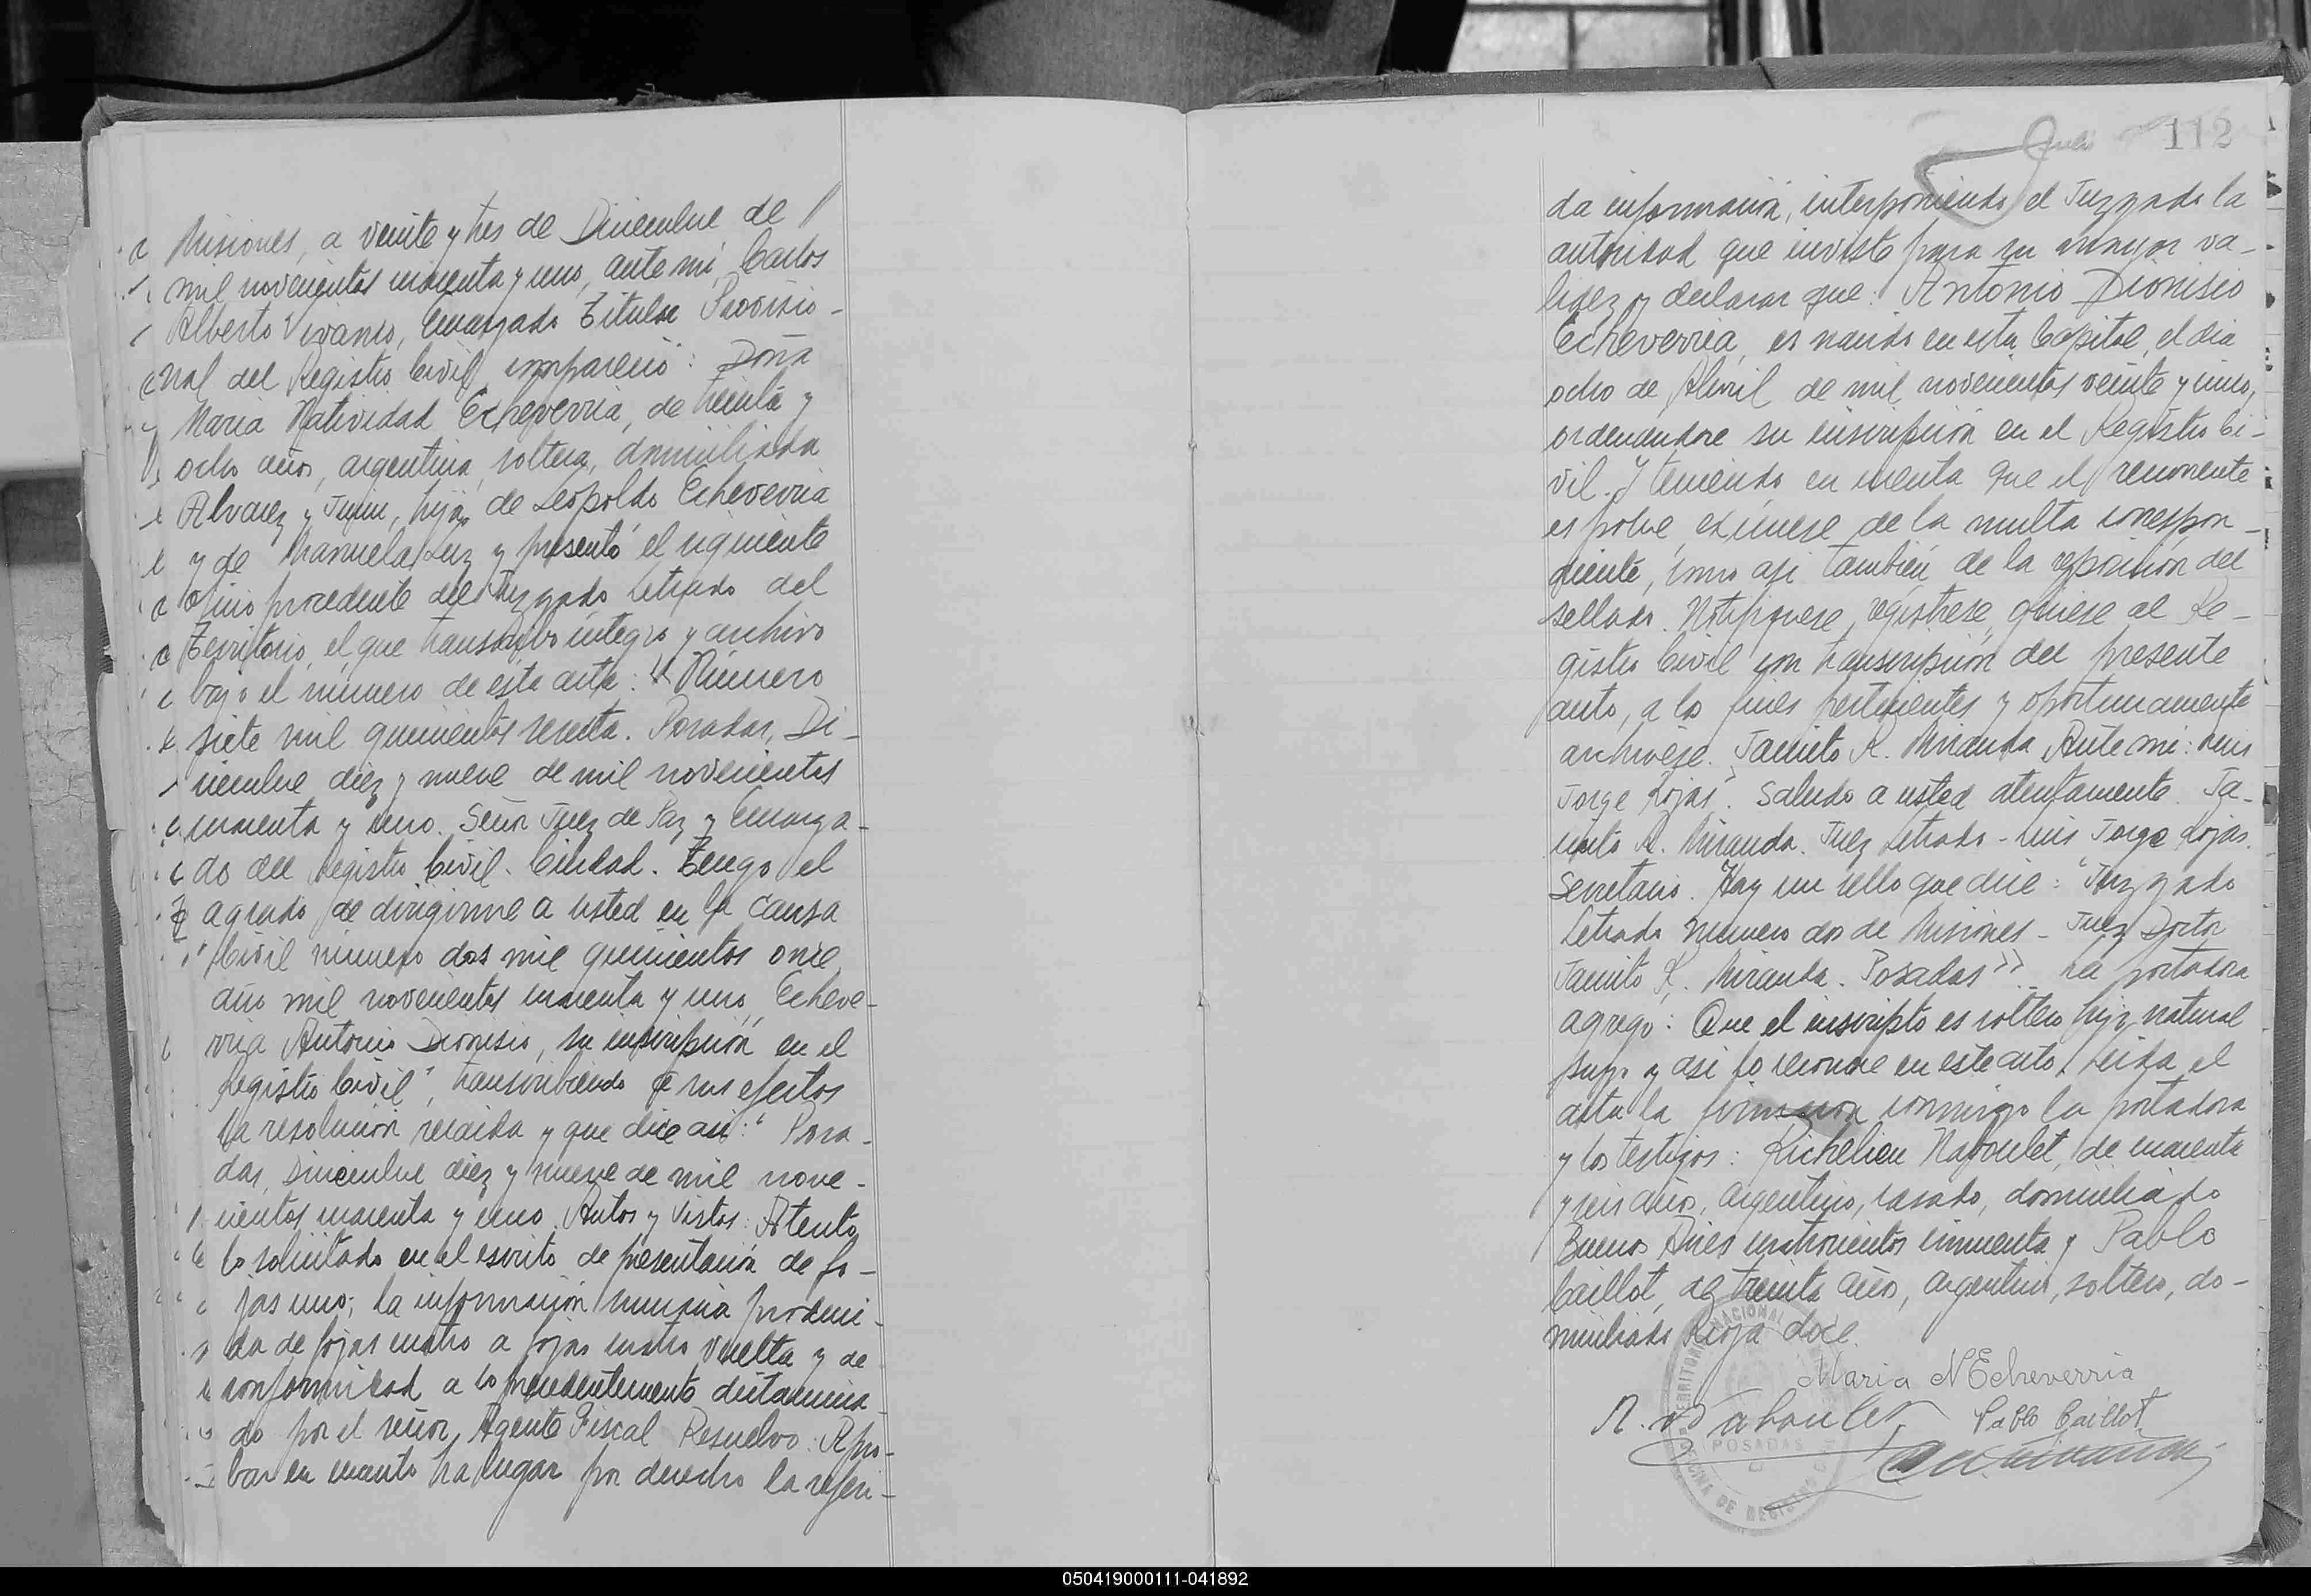 Misiones, a veinte y tres de Diciembre de
mil novecientos cuarenta y uno, ante mi, Carlos
Alberto Vivanco, Encargado Titular Provisio-
nal del Registro Civil, compareció: Doña
Maria Natividad Echeverria, de treinta y
ocho años, argentina, soltera, domiciliada
Alvarez y Junin, hija de Leopoldo Echeverria
y de Manuela Luz y presentó el siguiente
oficio procedente del Juzgado Letrado del
Territorio, el que transcribo íntegro y archivo
bajo el número de esta acta: "Número
siete mil quinientos sesenta. Posadas, Di-
ciembre diez y nueve de mil novecientos
cuarenta y uno. Señor Juez de Paz y Encarga-
do del Registro Civil. Ciudad. Tengo el
agrado de dirigirme a usted en la causa
"Civil número dos mil quinientos once
año mil novecientos cuarenta y uno, Echeve-
rria Antonio Dionisio, su inscripción en el
Registro Civil", transcribiendo a sus efectos
la resolución recaida y que dice asi: "Posa-
das, Diciembre diez y nueve de mil nove-
cientos cuarenta y uno. Autos y Vistos: Atento
lo solicitado en el escrito de presentación de fo-
jas uno; la información sumaria produci-
da de fojas cuatro a fojas cuatro vuelta y de
conformidad a lo precedentemente dictamina-
do por el señor Agente Fiscal Resuelvo: Apro-
bar en cuanto ha lugar por derecho la referi-
112
da información, interponiendo el Juzgado la
autoridad que inviste para su mayor va-
lidez y declarar que: Antonio Dionisio
Echeverria, es nacido en esta Capital, el dia
ocho de Abril de mil novecientos veinte y cinco,
ordenandose su inscripción en el Registro Ci-
vil. Y teniendo en cuenta que el recurrente
es pobre, exímese de la multa correspon-
diente, como asi también de la reposición del
sellado. Notifiquese, regístrese, ofíciese al Re-
gistro Civil con transcripción del presente
auto, a los fines pertinentes y oportunamente
archívese. Jacinto R. Miranda Ante mi: Luis
Jorge Rojas". Saludo a usted atentamente. Ja-
cinto R. Miranda. Juez Letrado - Luis Jorge Rojas.
Secretario. Hay un sello que dice: "Juzgado
Letrado número dos de Misiones - Juez Doctor
Jacinto R. Miranda. Posadas". La portadora
agregó: Que el inscripto es soltero hijo natural
suyo y asi lo reconoce en este acto. Leida el
acta la firmaron conmigo la portadora
y los testigos: Richelieu Naboulet, de cuarenta
y seis años, argentino, casado, domiciliado
Buenos Aires cuatrocientos cincuenta y Pablo
Caillot, de treinta años, argentino, soltero, do-
miciliado Rioja doce.
Maria N Echeverria
Pablo Caillot
POSADAS